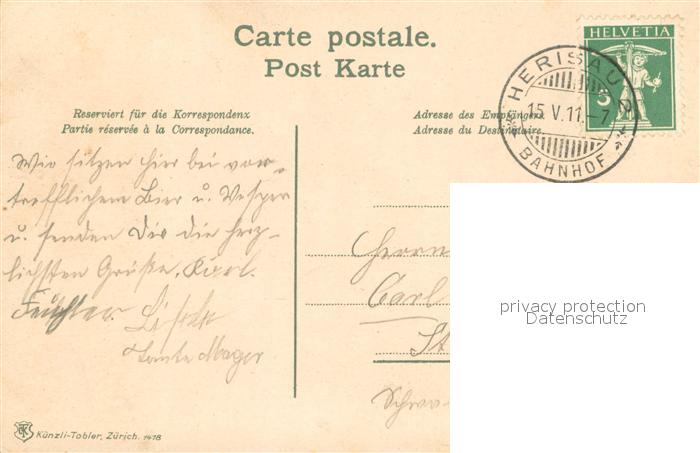 Carte postale.
Post Karte
HELVETIA
5
HERISAU 2
15 V. 11.-7
BAHNHOF
Reserviert für die Korrespondenz
Partie réservée à la Correspondance.
Adresse des Empfängers
Adresse du Destinataire.
Wir sitzen hier bei vor-
trefflichem Bier u. Vesper
u. senden Dir die herz-
lichsten Grüße. Karl.
Tante Mayer
Herrn
Carl
St
Schwa
privacy protection
Datenschutz
Künzli-Tobler, Zürich. 1418